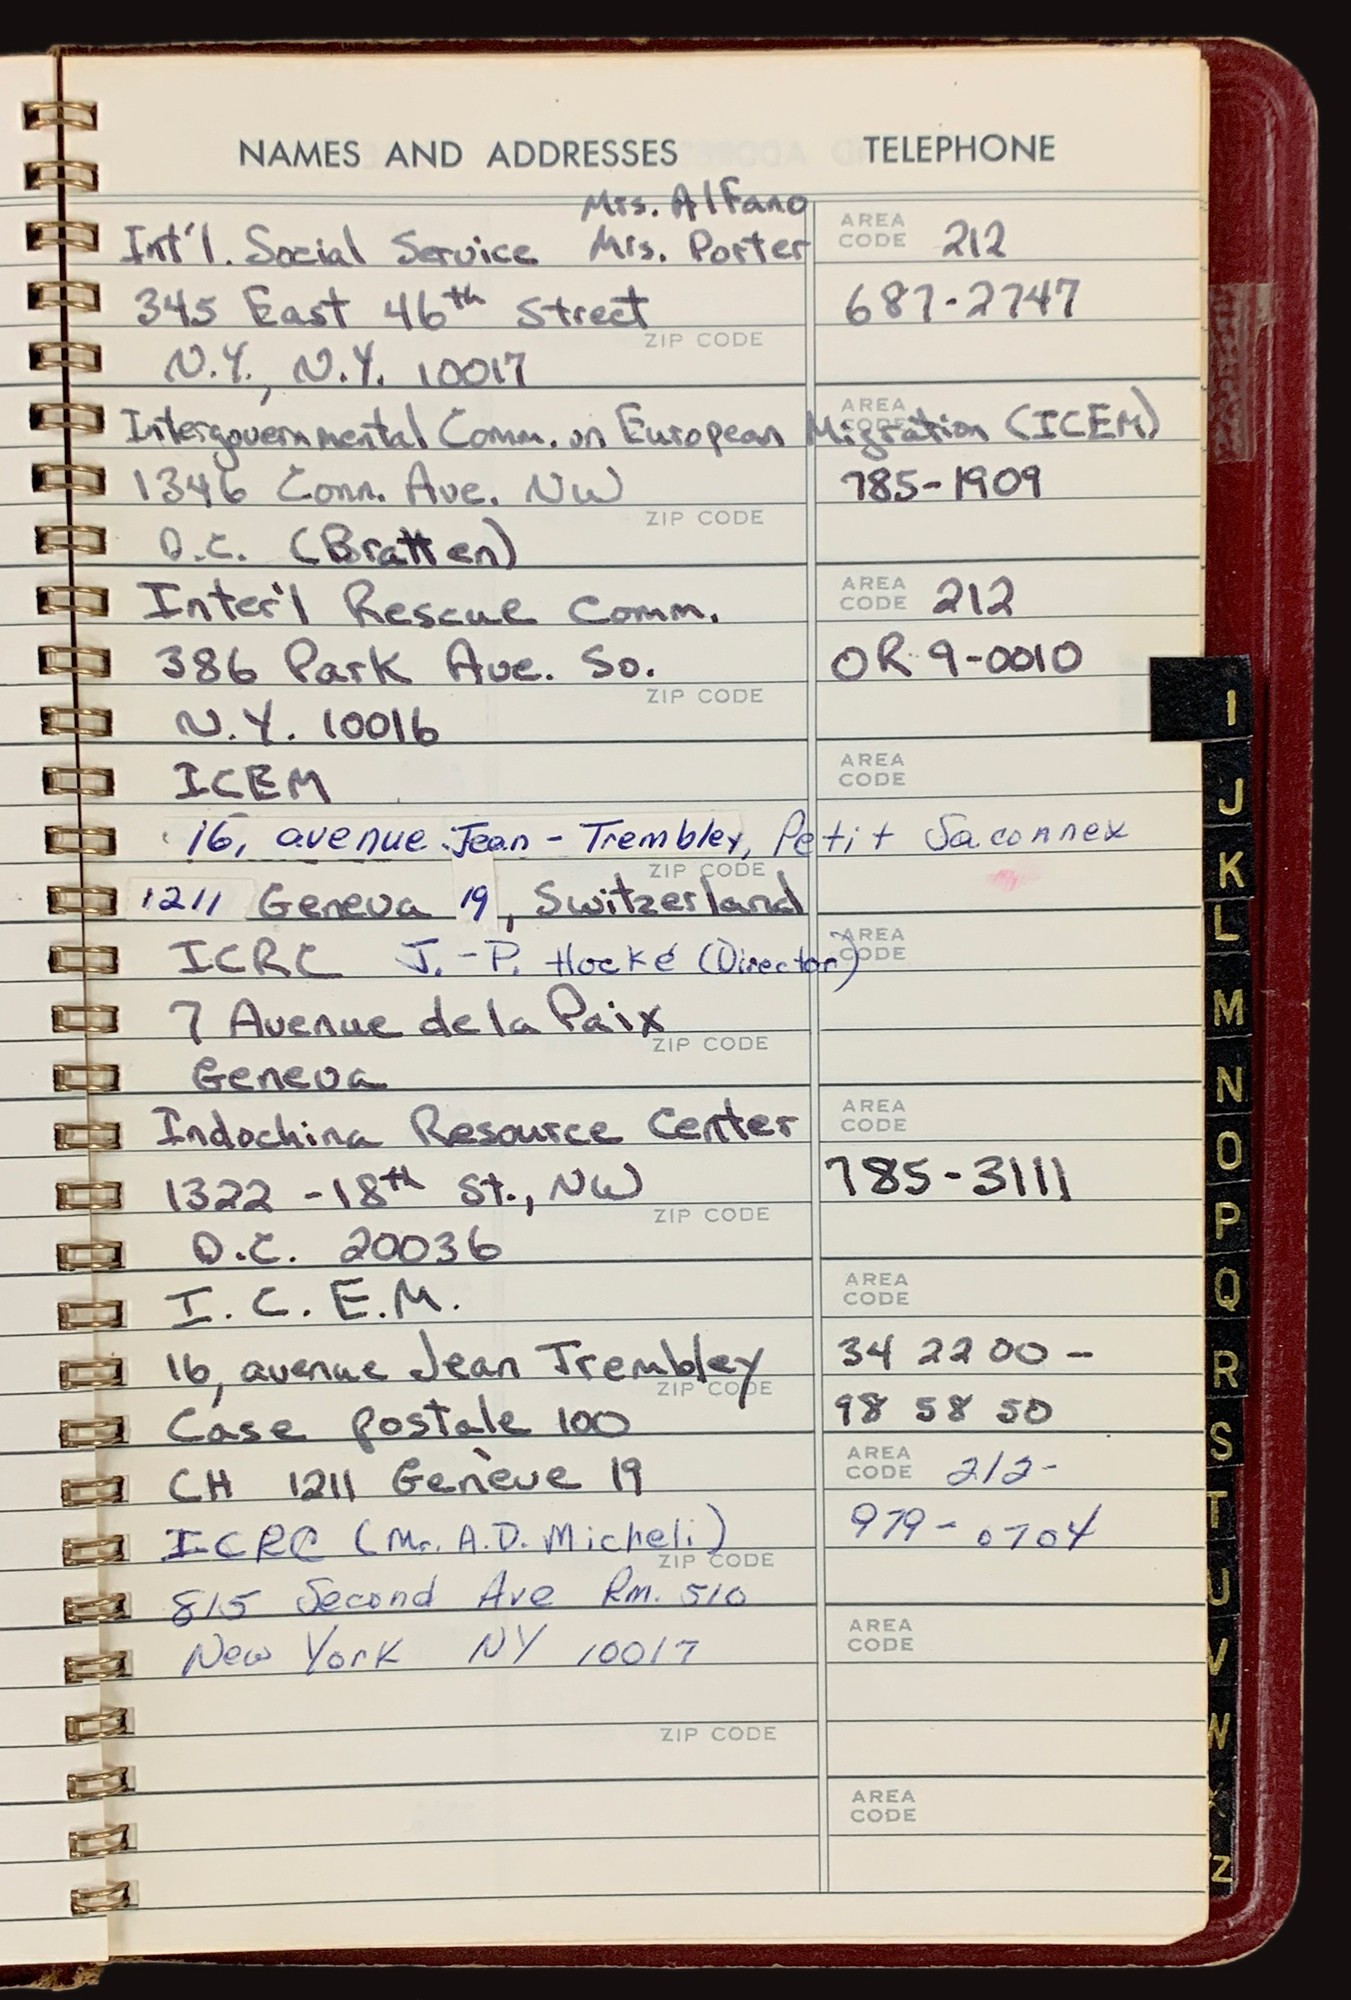 NAMES AND ADDRESSES TELEPHONE
Mrs. Alfano
Int'l. Social Service Mrs. Porter AREA CODE 212
345 East 46th Street 687-2747
ZIP CODE
N.Y., N.Y. 10017
AREA CODE
Intergovernmental Comm. on European Migration (ICEM)
1346 Conn. Ave. NW 785-1909
ZIP CODE
D.C. (Bratten)
Inter'l Rescue Comm. AREA CODE 212
386 Park Ave. So. OR 9-0010
ZIP CODE
N.Y. 10016
ICEM AREA CODE
16, avenue Jean-Trembley, Petit Saconnex
ZIP CODE
1211 Geneva 19, Switzerland
ICRC J.-P. Hocké (Director) AREA CODE
7 Avenue de la Paix
ZIP CODE
Geneva
Indochina Resource Center AREA CODE
1322 -18th St., NW 785-3111
ZIP CODE
D.C. 20036
I.C.E.M. AREA CODE
16, avenue Jean Trembley 34 22 00 -
ZIP CODE
Case postale 100 98 58 50
CH 1211 Genève 19 AREA CODE 212-
ICRC (Mr. A.D. Micheli) 979-0704
ZIP CODE
815 Second Ave Rm. 510
New York NY 10017 AREA CODE
ZIP CODE
AREA CODE
I
J
K
L
M
N
O
P
Q
R
S
T
U
V
W
X
Z